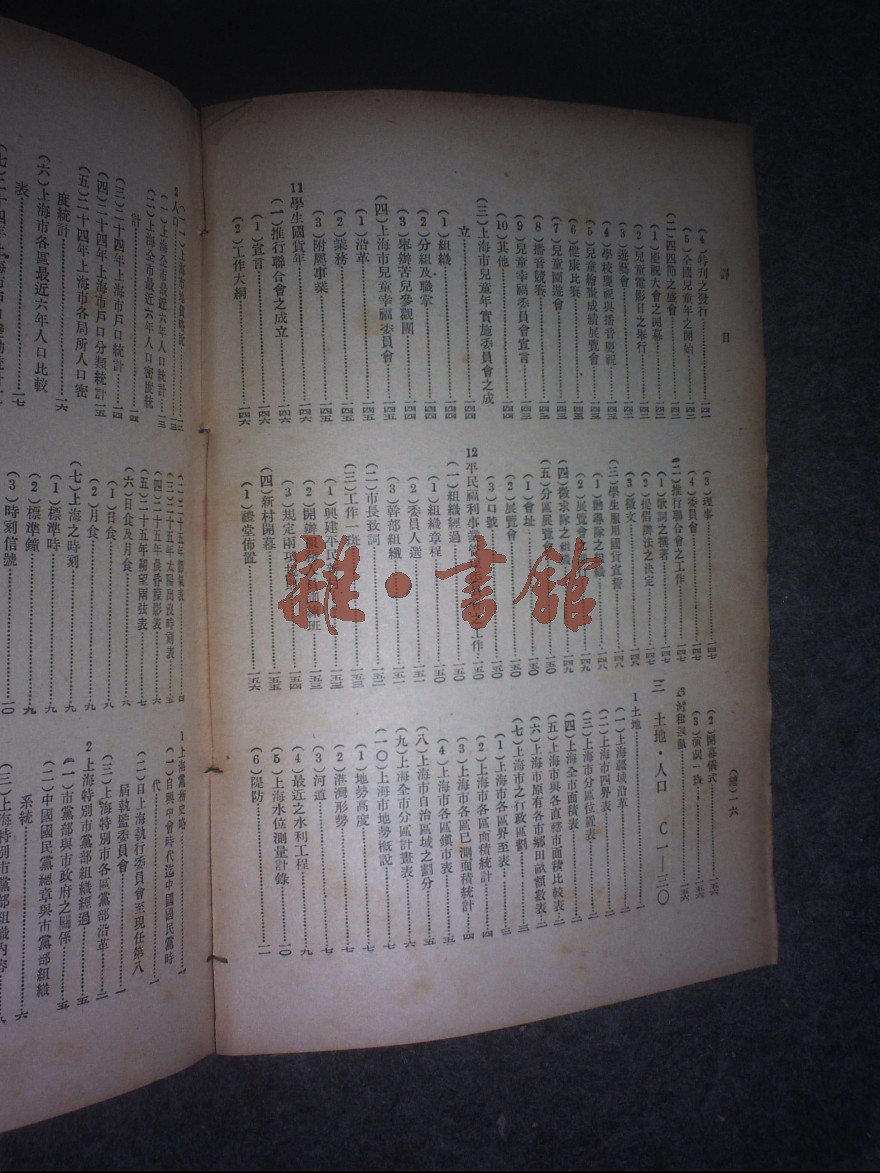 詳目
(4)特刊之發行……一四一
(5)全國兒童年之開始……一四二
(二)四四節之盛會……一四二
(1)慶祝大會之開幕……一四二
(2)兒童電影日之舉行……一四二
(3)遊藝會……一四二
(4)學校慶祝與播音慶祝……一四三
(5)兒童繪畫成績展覽會……一四三
(6)健康比賽……一四三
(7)兒童園遊會……一四三
(8)播音競賽……一四四
(9)兒童幸福委員會宣言……一四四
(10)其他……一四四
(三)上海市兒童年實施委員會之成
立……一四四
(1)組織……一四四
(2)分組及職掌……一四四
(3)舉辦苦兒參觀團……一四五
(四)上海市兒童幸福委員會……一四五
(1)沿革……一四五
(2)業務……一四五
(3)附屬事業……一四五
11學生國貨年
(一)推行聯合會之成立……一四六
(1)宣言……一四六
(2)工作大綱……一四六
(3)理事……一四七
(4)委員會……一四七
(二)推行聯合會之工作……一四七
(1)歌詞之撰著……一四七
(2)提倡辦法之決定……一四八
(3)徵文……一四八
(三)學生服用國貨宣誓……一四八
(2)展覽會……一四九
(四)徵求隊之組織……一四九
(五)分區展覽會……一五〇
(1)會址……一五〇
(2)展覽會……一五〇
(3)口號……一五〇
12平民福利事業
之工作
(一)組織經過……一五〇
(1)組織章程……一五〇
(2)委員人選……一五一
(3)幹部組織……一五一
(二)市長致詞……一五二
(三)工作一班……一五三
(1)興建平民
(2)開辦
班……一五三
(3)規定兩項
……一五四
(四)新村開幕……一五六
(1)禮堂佈置……一五六
(總)一六
(2)開幕儀式……一五六
(3)演詞一班……一五六
三 土地·人口 C一—三〇
1土地……一
(一)上海疆域沿革……一
(二)上海市四界表……二
(三)上海市分區位置表……二
(四)上海全市面積表……二
(五)上海市與各直轄市面積比較表……二
(六)上海市原有各市鄉田畝額數表……二
(七)上海市之行政區劃……三
(1)上海市各區界至表……三
(2)上海市各區面積統計……四
(3)上海市各區已測面積統計……四
(4)上海市各區鎮市表……五
(八)上海市自治區域之劃分……五
(九)上海全市分區計畫表……六
(一〇)上海市地勢概說……七
(1)地勢高度……七
(2)港灣形勢……七
(3)河道……七
(4)最近之水利工程……九
(5)上海水位測量計錄……一〇
(6)隄防……一一
2人口……一三
(一)上海全市最近六年人口統計……一三
(二)上海全市最近六年人口密度統
計……一四
(三)二十四年上海市戶口統計……一四
(四)二十四年上海市戶口分類統計……一五
(五)二十四年上海市各局所人口密
度統計……一六
(六)上海市各區最近六年人口比較
表……一七
(三)二十五年太陽出沒時刻表……五
(四)二十五年晨昏曚影表……六
(五)二十五年朔望兩弦表……七
(六)日食及月食……八
(1)日食……九
(2)月食……九
(七)上海之時刻……九
(1)標準時……九
(2)標準鐘……九
(3)時刻信號……一〇
1上海黨部史略……一
(一)自興中會時代迄中國國民黨時
代……一
(二)自上海執行委員會至現任第八
屆執監委員會……一
(三)上海特別市各區黨部沿革……二
2上海特別市黨部組織經過……五
(一)市黨部與市政府之關係……五
(二)中國國民黨總章與市黨部組織
系統……六
(三)上海特別市黨部組織內容
雜·書館